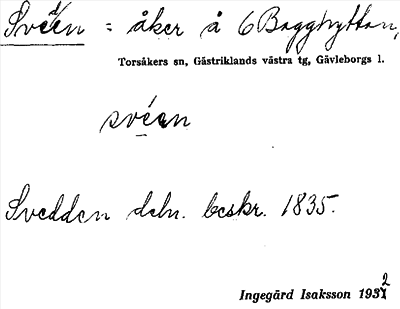 Svéen = åker å 6 Bagghyttan,
Torsåkers sn, Gästriklands västra tg, Gävleborgs l.
svéen
Svedden deln. beskr. 1835.
Ingegärd Isaksson 1932